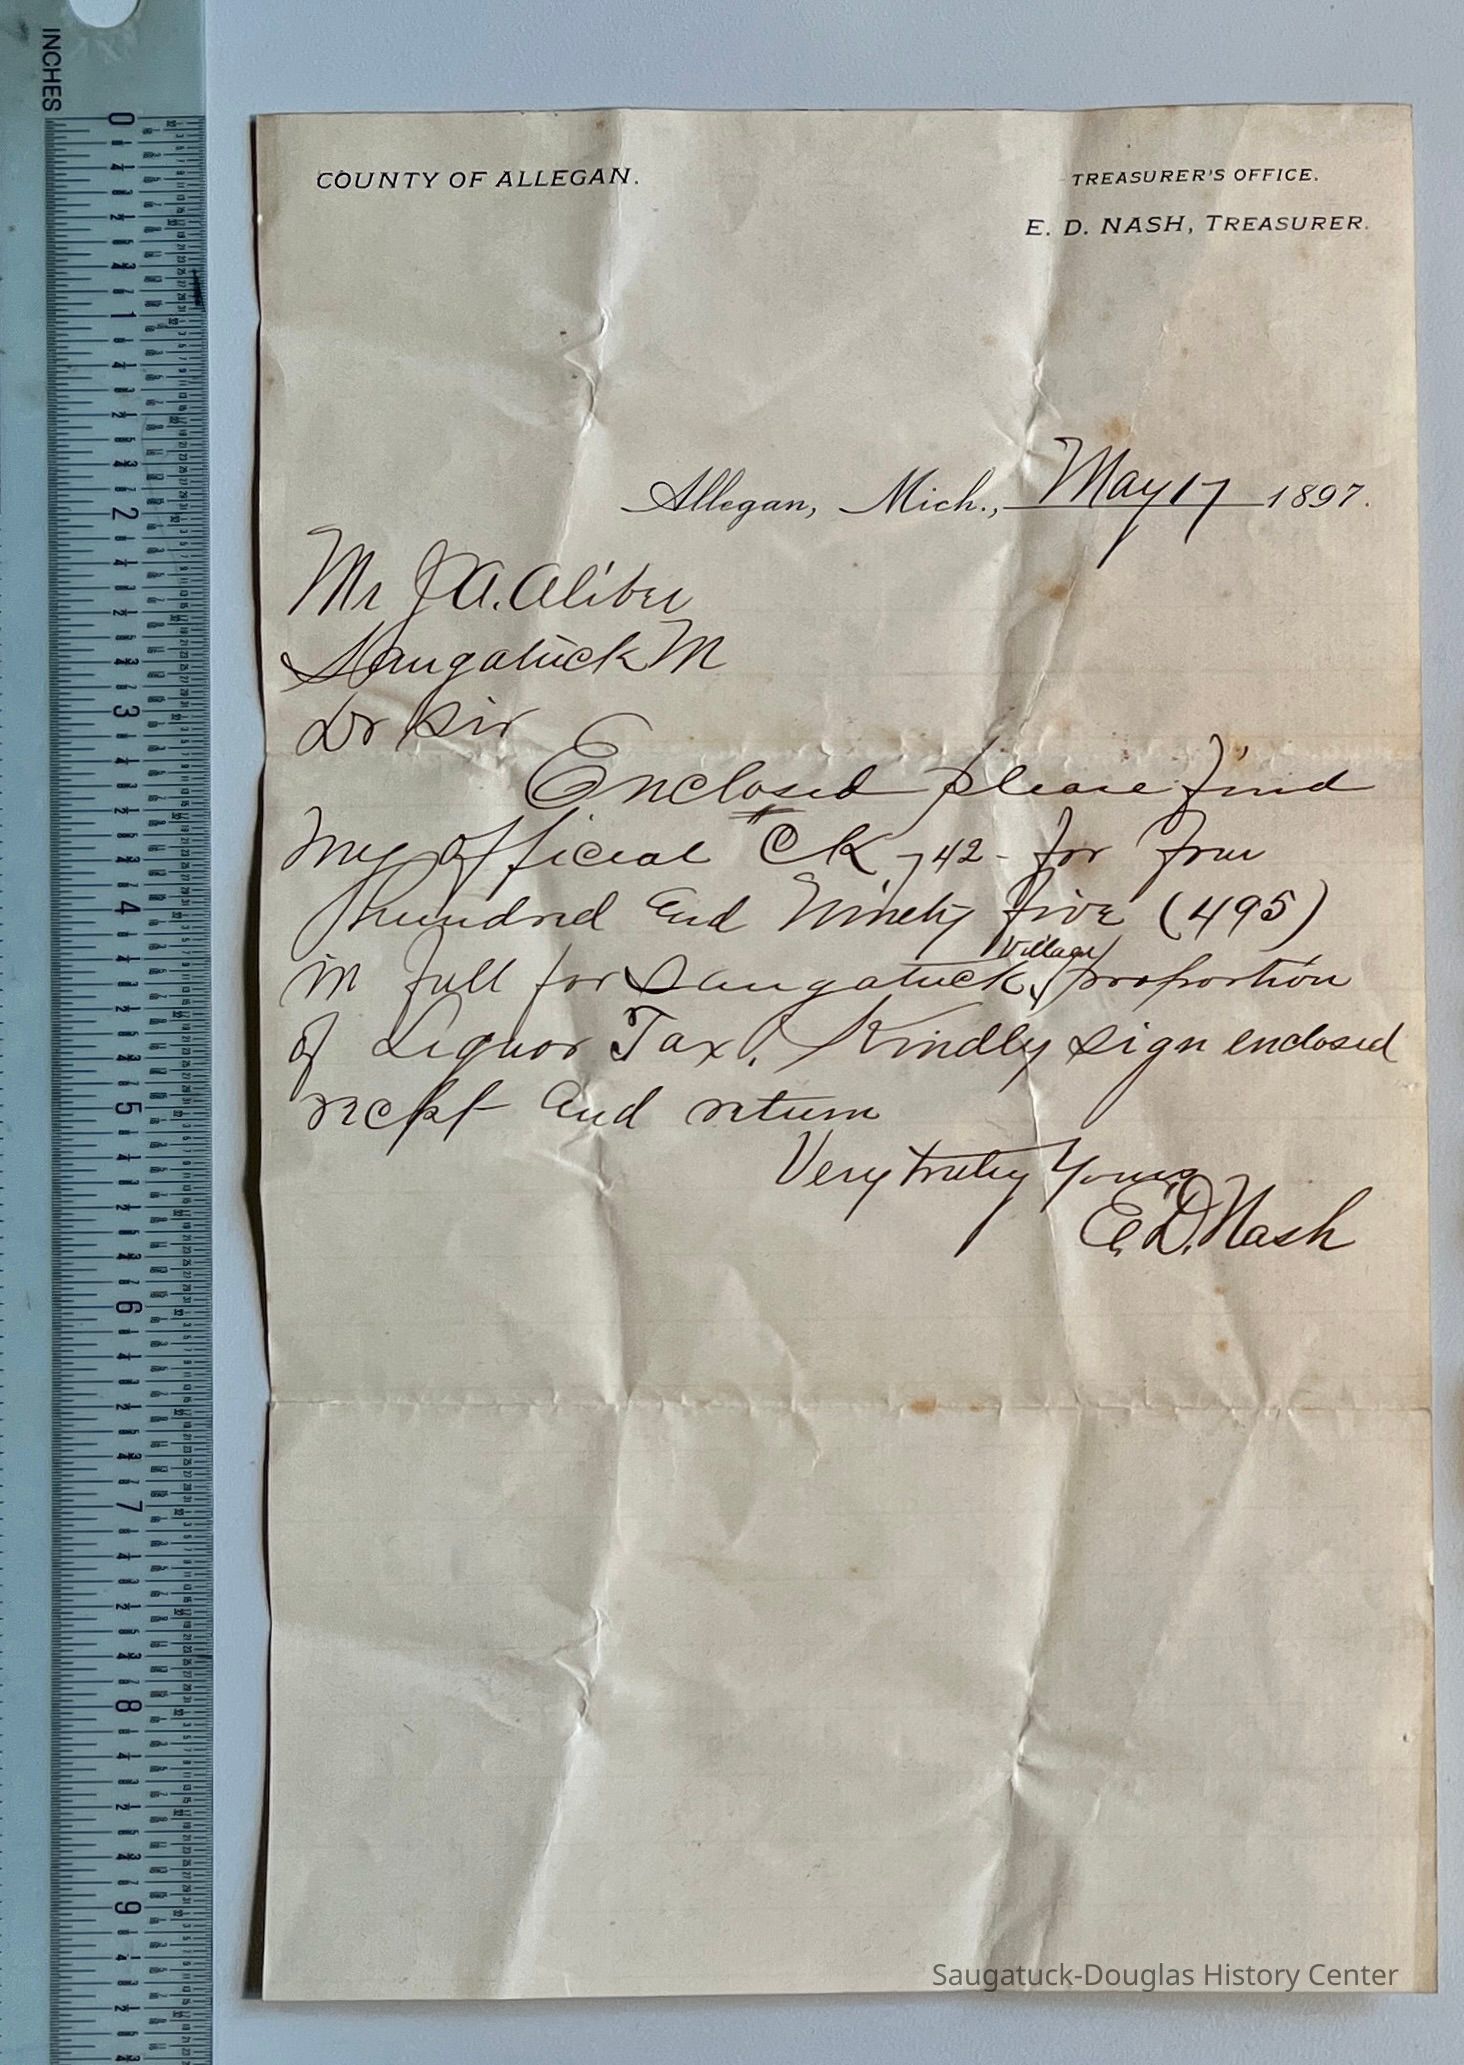 INCHES
COUNTY OF ALLEGAN.
TREASURER'S OFFICE.
E. D. NASH, TREASURER.
Allegan, Mich., May 17 1897.
Mr J A. Aliber
Saugatuck M
Dr Sir
Enclosed please find
my official Ck #742- for four
hundred and Ninety five (495)
in full for Saugatuck village proportion
of Liquor Tax. Kindly sign enclosed
recpt and return
Very truly Yours
E. D. Nash
0
1
2
3
4
5
6
7
8
9
Saugatuck-Douglas History Center